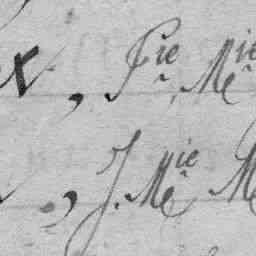 x, Pie Mie
, J. Mie M